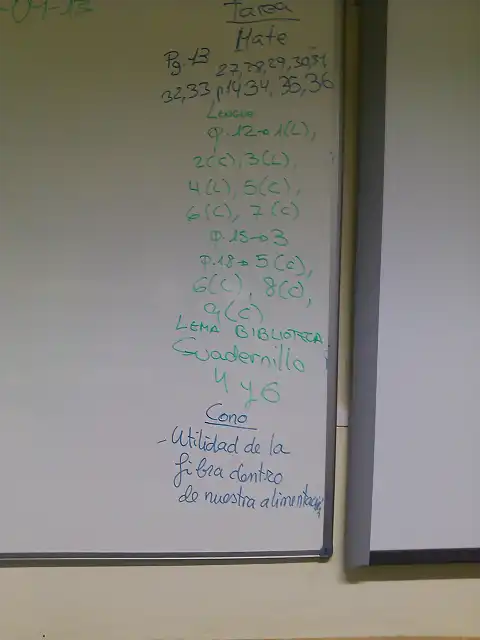 -1-13
Tarea
Mate
Pg. 13
27, 28, 29, 30, 31
32, 33, p14, 34, 35, 36
LENGUA
p.12→1(L),
2(C), 3(L),
4(L), 5(C),
6(C), 7(C)
p.15→3
p.18→5(C),
6(C), 8(C),
9(C)
LEMA BIBLIOTECA
Cuadernillo
4 y 6
Cono
- Utilidad de la
fibra dentro
de nuestra alimentación